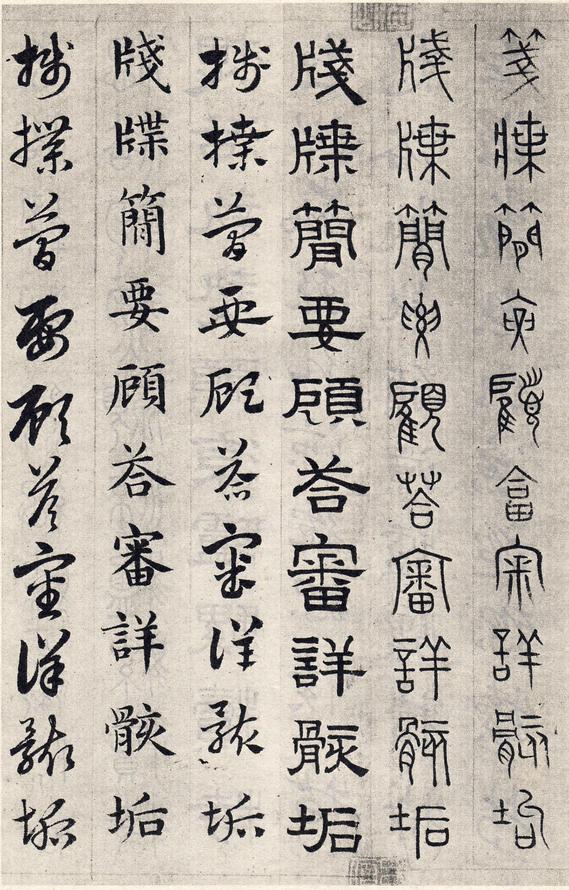 箋牒簡要顧畣宷詳骸垢
牋牒簡要顧荅審詳骸垢
牋牒簡要頋荅審詳骸垢
牋牒簡要頋荅審詳骸垢
牋牒簡要頋荅審詳骸垢
牋牒簡要頋荅審詳骸垢